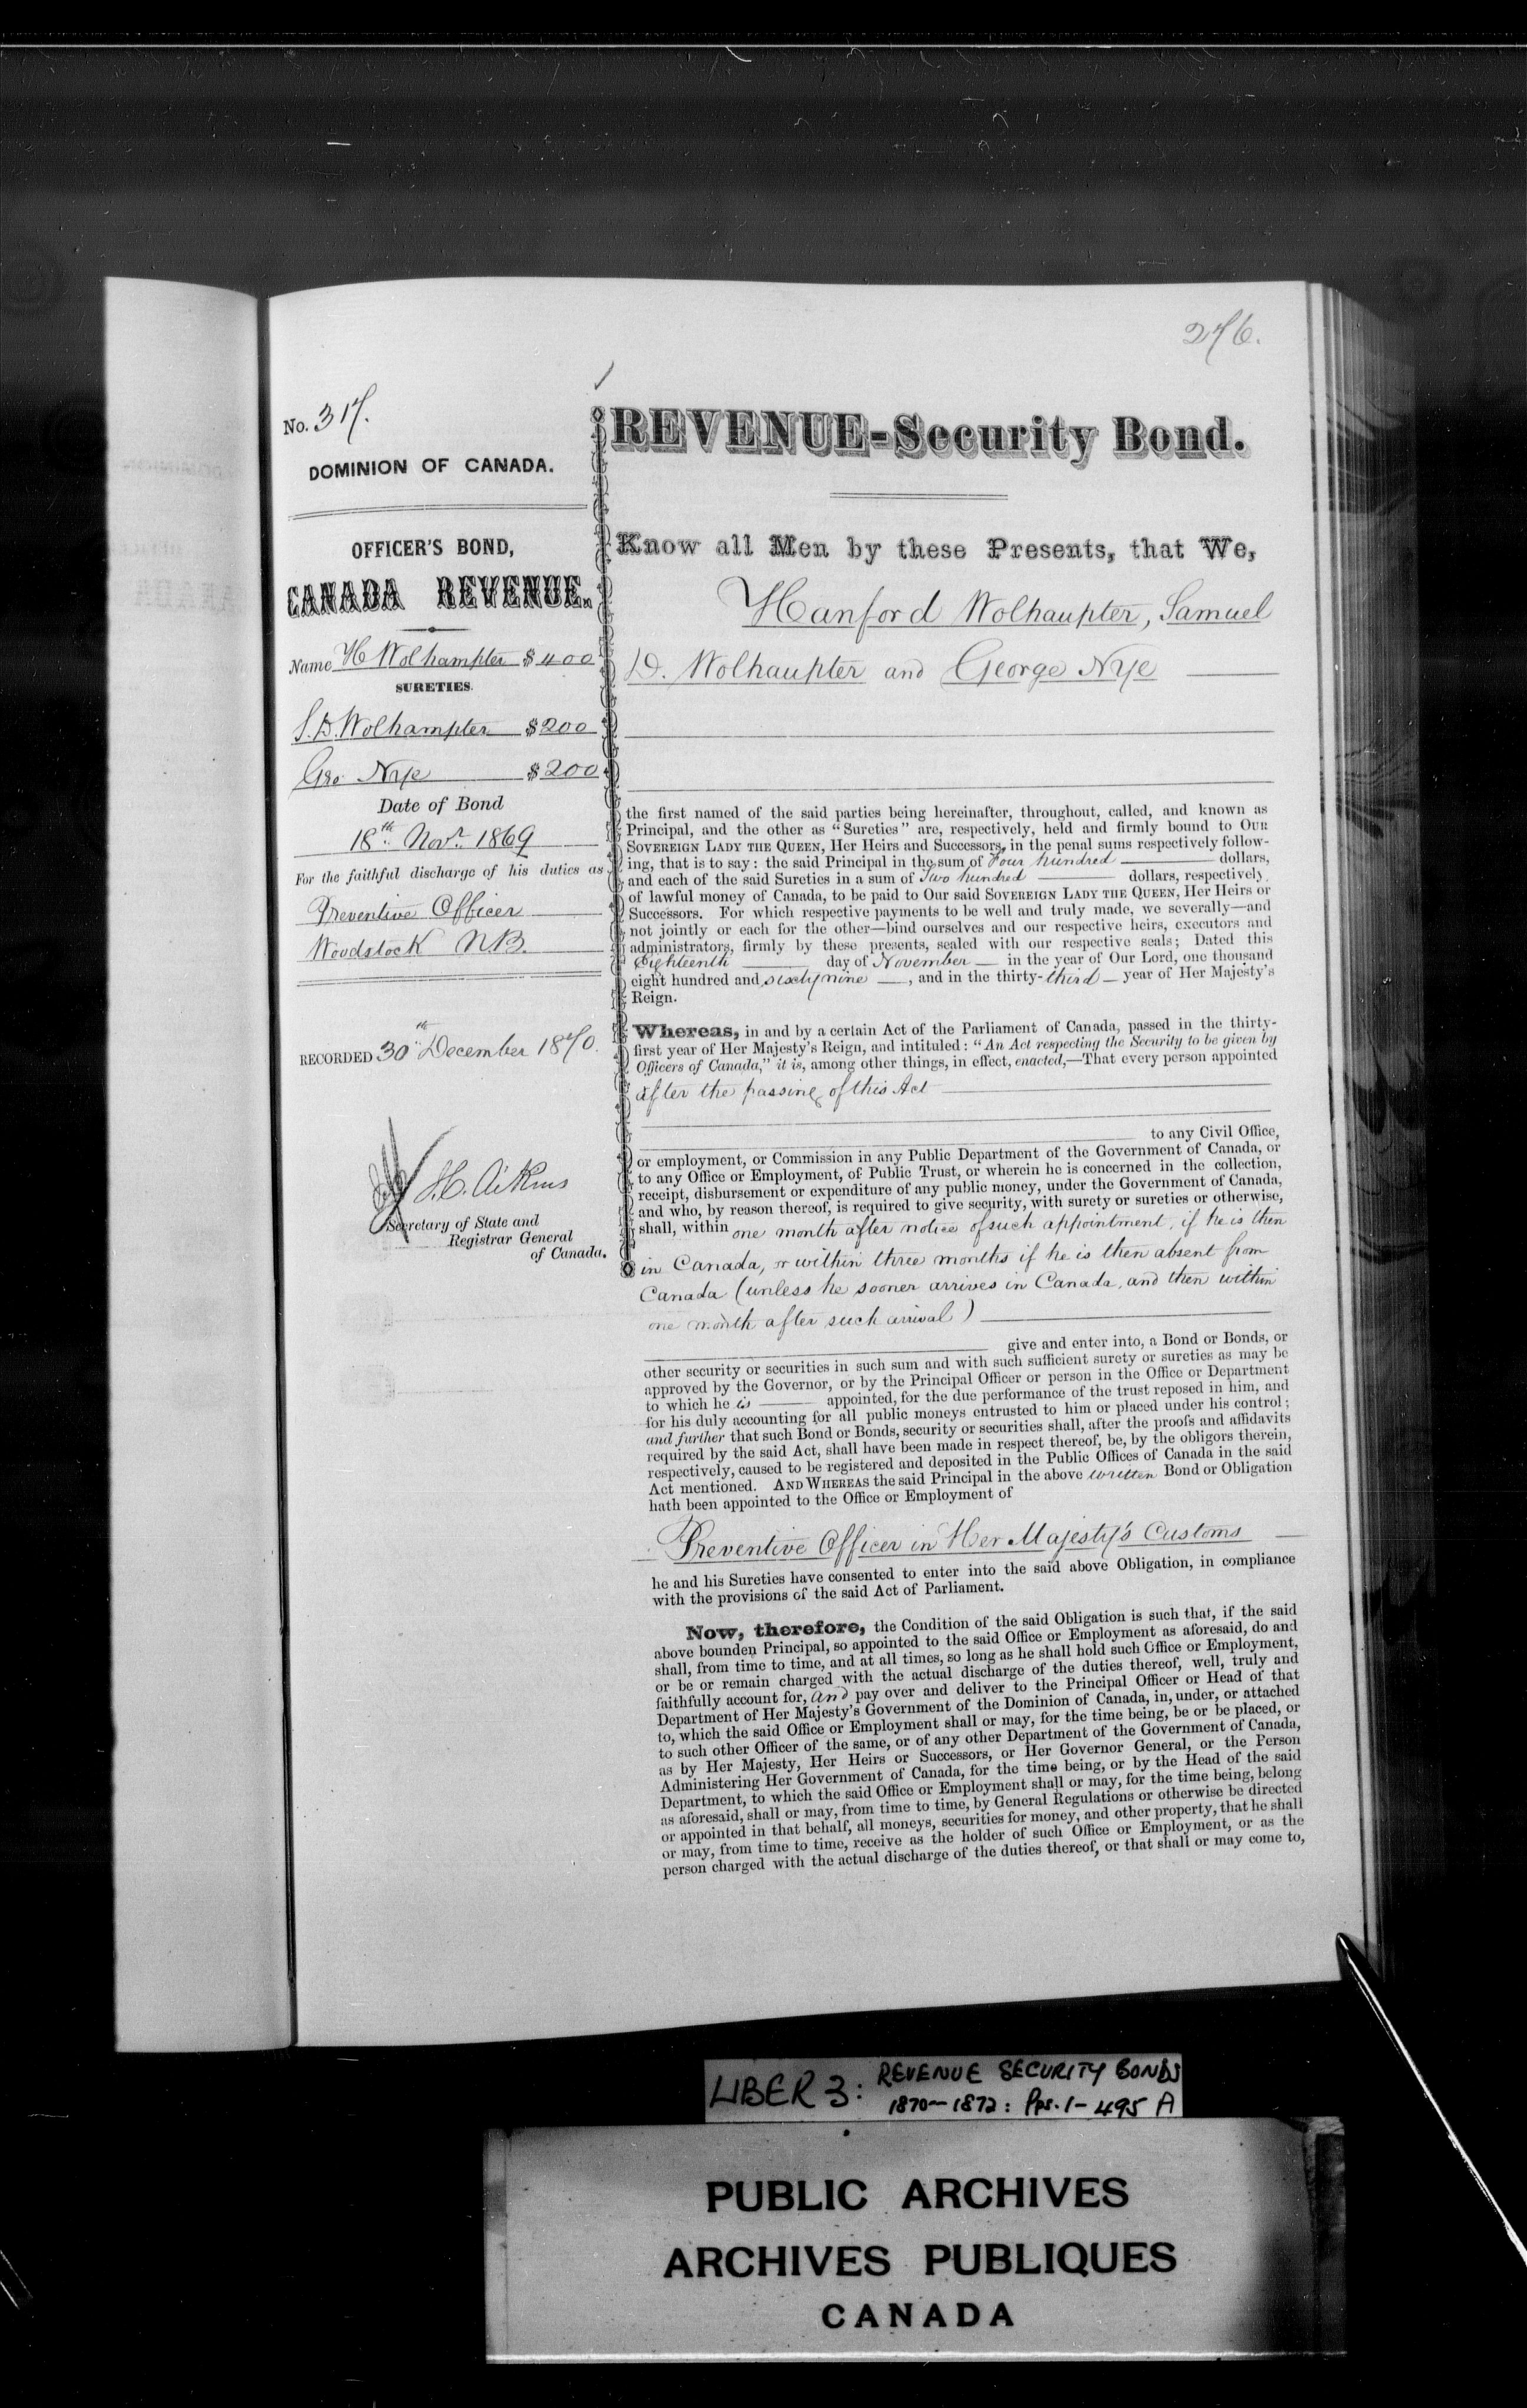 276.
No. 317.
DOMINION OF CANADA.
OFFICER'S BOND,
CANADA REVENUE.
Name H Wolhampter $400
SURETIES.
S. D. Wolhampter $200
Geo. Nye $200
Date of Bond
18th Novr. 1869
For the faithful discharge of his duties as
Preventive Officer
Woodstock N.B.
RECORDED 30th December 1870.
J.C. Aikins
Secretary of State and
Registrar General
of Canada.
REVENUE-Security Bond.
Know all Men by these Presents, that We,
Hanford Wolhaupter, Samuel
D. Wolhaupter and George Nye
the first named of the said parties being hereinafter, throughout, called, and known as
Principal, and the other as "Sureties" are, respectively, held and firmly bound to OUR
SOVEREIGN LADY THE QUEEN, Her Heirs and Successors, in the penal sums respectively follow-
ing, that is to say: the said Principal in the sum of Four hundred dollars,
and each of the said Sureties in a sum of Two hundred dollars, respectively,
of lawful money of Canada, to be paid to Our said SOVEREIGN LADY THE QUEEN, Her Heirs or
Successors. For which respective payments to be well and truly made, we severally—and
not jointly or each for the other—bind ourselves and our respective heirs, executors and
administrators, firmly by these presents, sealed with our respective seals; Dated this
Eighteenth day of November in the year of Our Lord, one thousand
eight hundred and sixty nine, and in the thirty-third year of Her Majesty's
Reign.
Whereas, in and by a certain Act of the Parliament of Canada, passed in the thirty-
first year of Her Majesty's Reign, and intituled: "An Act respecting the Security to be given by
Officers of Canada," it is, among other things, in effect, enacted,—That every person appointed
after the passing of this Act
to any Civil Office,
or employment, or Commission in any Public Department of the Government of Canada, or
to any Office or Employment, of Public Trust, or wherein he is concerned in the collection,
receipt, disbursement or expenditure of any public money, under the Government of Canada,
and who, by reason thereof, is required to give security, with surety or sureties or otherwise,
shall, within one month after notice of such appointment, if he is then
in Canada, or within three months if he is then absent from
Canada (unless he sooner arrives in Canada, and then within
one month after such arrival)
give and enter into, a Bond or Bonds, or
other security or securities in such sum and with such sufficient surety or sureties as may be
approved by the Governor, or by the Principal Officer or person in the Office or Department
to which he is appointed, for the due performance of the trust reposed in him, and
for his duly accounting for all public moneys entrusted to him or placed under his control;
and further that such Bond or Bonds, security or securities shall, after the proofs and affidavits
required by the said Act, shall have been made in respect thereof, be, by the obligors therein,
respectively, caused to be registered and deposited in the Public Offices of Canada in the said
Act mentioned. AND WHEREAS the said Principal in the above written Bond or Obligation
hath been appointed to the Office or Employment of
Preventive Officer in Her Majesty's Customs
he and his Sureties have consented to enter into the said above Obligation, in compliance
with the provisions of the said Act of Parliament.
Now, therefore, the Condition of the said Obligation is such that, if the said
above bounden Principal, so appointed to the said Office or Employment as aforesaid, do and
shall, from time to time, and at all times, so long as he shall hold such Office or Employment,
or be or remain charged with the actual discharge of the duties thereof, well, truly and
faithfully account for, and pay over and deliver to the Principal Officer or Head of that
Department of Her Majesty's Government of the Dominion of Canada, in, under, or attached
to, which the said Office or Employment shall or may, for the time being, be or be placed, or
to such other Officer of the same, or of any other Department of the Government of Canada,
as by Her Majesty, Her Heirs or Successors, or Her Governor General, or the Person
Administering Her Government of Canada, for the time being, or by the Head of the said
Department, to which the said Office or Employment shall or may, for the time being, belong
as aforesaid, shall or may, from time to time, by General Regulations or otherwise be directed
or appointed in that behalf, all moneys, securities for money, and other property, that he shall
or may, from time to time, receive as the holder of such Office or Employment, or as the
person charged with the actual discharge of the duties thereof, or that shall or may come to,
LIBER 3: REVENUE SECURITY BONDS
1870-1872: Pps. 1-495 A
PUBLIC ARCHIVES
ARCHIVES PUBLIQUES
CANADA